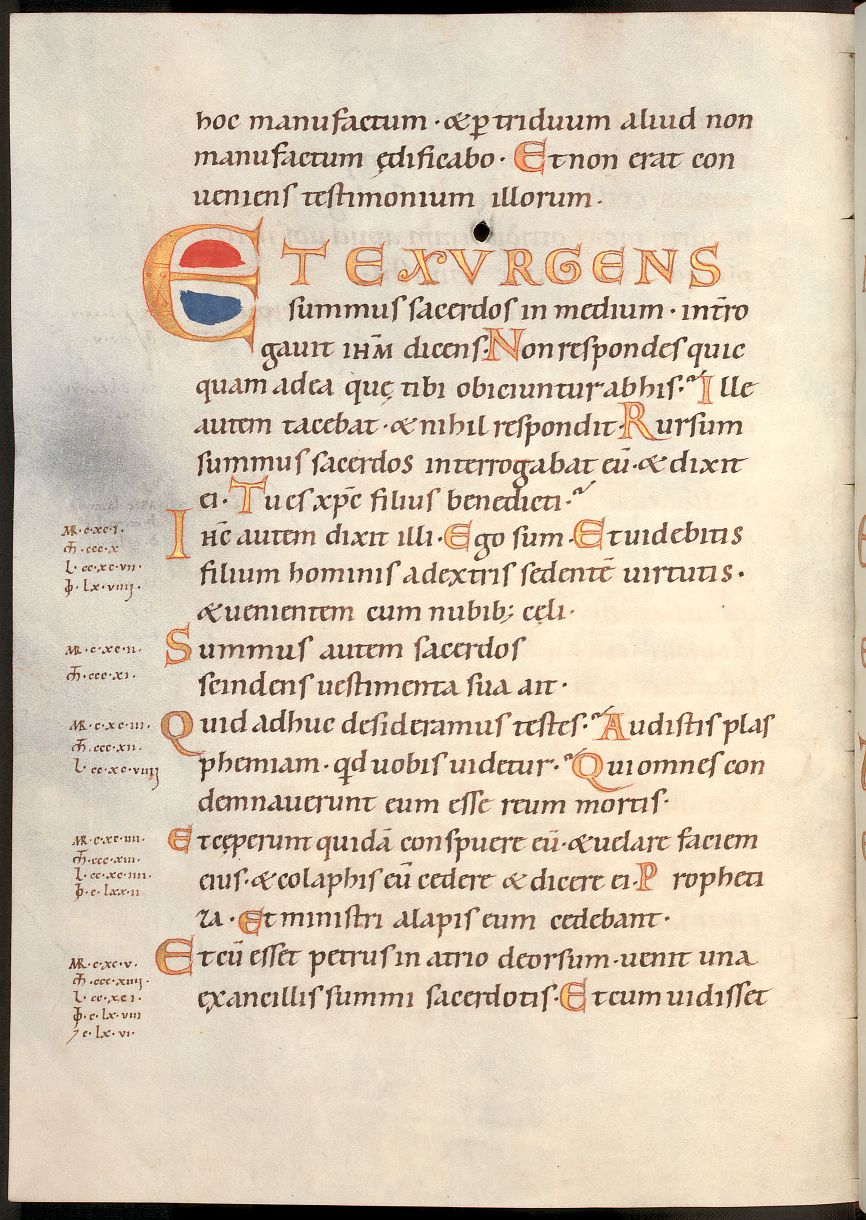 hoc manufactum · & p̱ triduum aliud non
manufactum ędificabo · Et non erat con
ueniens testimonium illorum ·
ET EXVRGENS
summus sacerdos in medium · intr̄o
gauit IHM̄ dicens · Non respondes quic
quam ad ea quę tibi obiciuntur ab his · Ille
autem tacebat · & nihil respondit · Rursum
summus sacerdos interrogabat eū · & dixit
ei · Tu es xp̄c filius benedicti ·
IHC̄ autem dixit illi · Ego sum · Et uidebitis
filium hominis a dextris sedentē uirtutis ·
& uenientem cum nubib; cęli ·
Summus autem sacerdos
scindens uestimenta sua ait ·
Quid adhuc desideramus testes · Audistis plas
phemiam · qd̄ uobis uidetur · Qui omnes con
demnauerunt eum esse reum mortis ·
Et cęperunt quidā conspuere eū · & uelare faciem
eius · & colaphis eū cedere & dicere ei · Propheti
za · Et ministri alapis eum cedebant ·
Et cū esset petrus in atrio deorsum · uenit una
ex ancillis summi sacerdotis · Et cum uidisset
MR · c · xc · i ·
m̄ · ccc · x
l · cc · xc · vii ·
ꝉo · lx · viiij ·
MR · c · xc · ii ·
m̄ · ccc · xi ·
MR · c · xc · iii ·
m̄ · ccc · xii ·
l · cc · xc · viiij
MR · c · xc · iiii ·
m̄ · ccc · xiii ·
l · cc · xc · iiii ·
ꝉo · c · lxx · ii
MR · c · xc · v ·
m̄ · ccc · xiiij ·
l · cc · xc · i ·
ꝉo · c · lx · viii
⁊ c · lx · vi ·